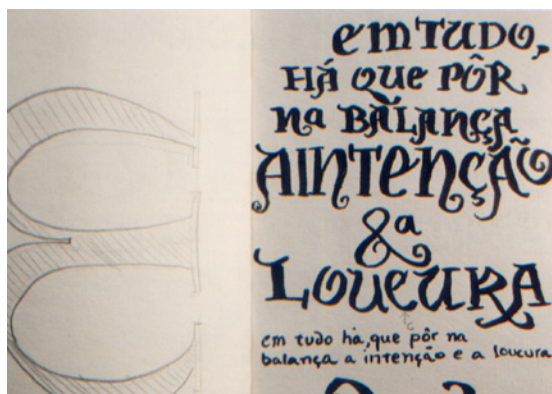 emTUDO,
HÁ QUe PÔR
na BALANÇA
AINTeNÇÃO
& a
LOUCURA
c
em tudo há, que pôr na
balança a intenção e a loucura